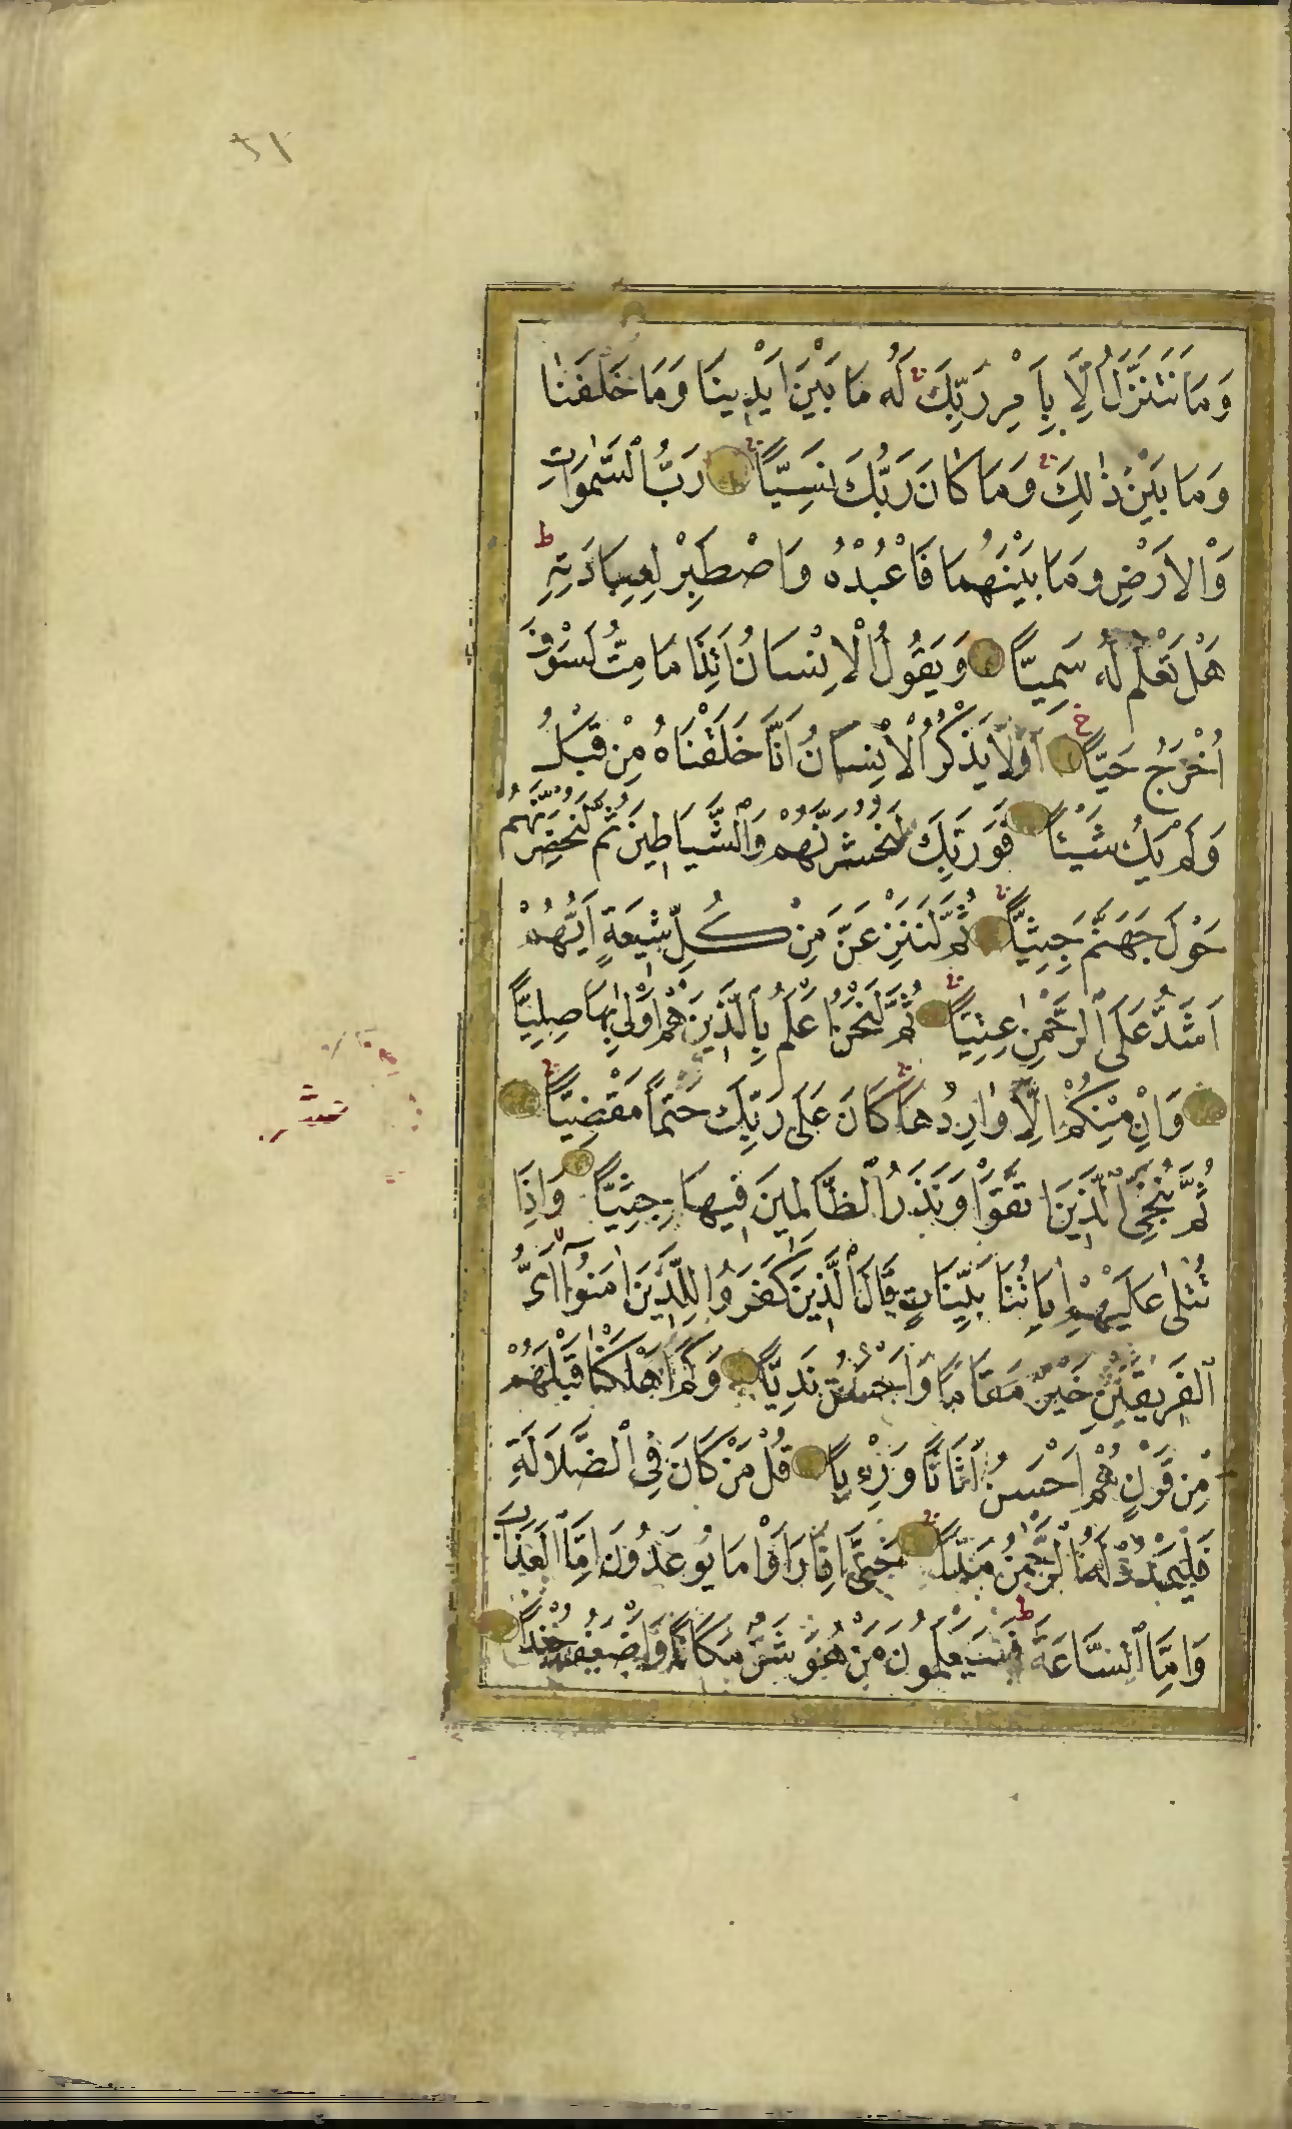 وَمَا نَتَنَزَّلُ اِلَّا بِاَمْرِ رَبِّكَ لَهُ مَا بَيْنَ اَيْدِينَا وَمَا خَلْفَنَا
وَمَا بَيْنَ ذٰلِكَ وَمَا كَانَ رَبُّكَ نَسِيًّا رَبُّ السَّمٰوَاتِ
وَالْاَرْضِ وَمَا بَيْنَهُمَا فَاعْبُدْهُ وَاصْطَبِرْ لِعِبَادَتِهِ
هَلْ تَعْلَمُ لَهُ سَمِيًّا وَيَقُولُ الْاِنْسَانُ ءَاِذَا مَا مِتُّ لَسَوْفَ
اُخْرَجُ حَيًّا اَوَلَا يَذْكُرُ الْاِنْسَانُ اَنَّا خَلَقْنَاهُ مِنْ قَبْلُ
وَلَمْ يَكُ شَيْئًا فَوَرَبِّكَ لَنَحْشُرَنَّهُمْ وَالشَّيَاطِينَ ثُمَّ لَنُحْضِرَنَّهُمْ
حَوْلَ جَهَنَّمَ جِثِيًّا ثُمَّ لَنَنْزِعَنَّ مِنْ كُلِّ شِيعَةٍ اَيُّهُمْ
اَشَدُّ عَلَى الرَّحْمٰنِ عِتِيًّا ثُمَّ لَنَحْنُ اَعْلَمُ بِالَّذِينَ هُمْ اَوْلٰى بِهَا صِلِيًّا
وَاِنْ مِنْكُمْ اِلَّا وَارِدُهَا كَانَ عَلٰى رَبِّكَ حَتْمًا مَقْضِيًّا
ثُمَّ نُنَجِّى الَّذِينَ اتَّقَوْا وَنَذَرُ الظَّالِمِينَ فِيهَا جِثِيًّا وَاِذَا
تُتْلٰى عَلَيْهِمْ اٰيَاتُنَا بَيِّنَاتٍ قَالَ الَّذِينَ كَفَرُوا لِلَّذِينَ اٰمَنُوا اَىُّ
الْفَرِيقَيْنِ خَيْرٌ مَقَامًا وَاَحْسَنُ نَدِيًّا وَكَمْ اَهْلَكْنَا قَبْلَهُمْ
مِنْ قَرْنٍ هُمْ اَحْسَنُ اَثَاثًا وَرِءْيًا قُلْ مَنْ كَانَ فِى الضَّلَالَةِ
فَلْيَمْدُدْ لَهُ الرَّحْمٰنُ مَدًّا حَتّٰى اِذَا رَاَوْا مَا يُوعَدُونَ اِمَّا الْعَذَابَ
وَاِمَّا السَّاعَةَ فَسَيَعْلَمُونَ مَنْ هُوَ شَرٌّ مَكَانًا وَاَضْعَفُ جُنْدًا